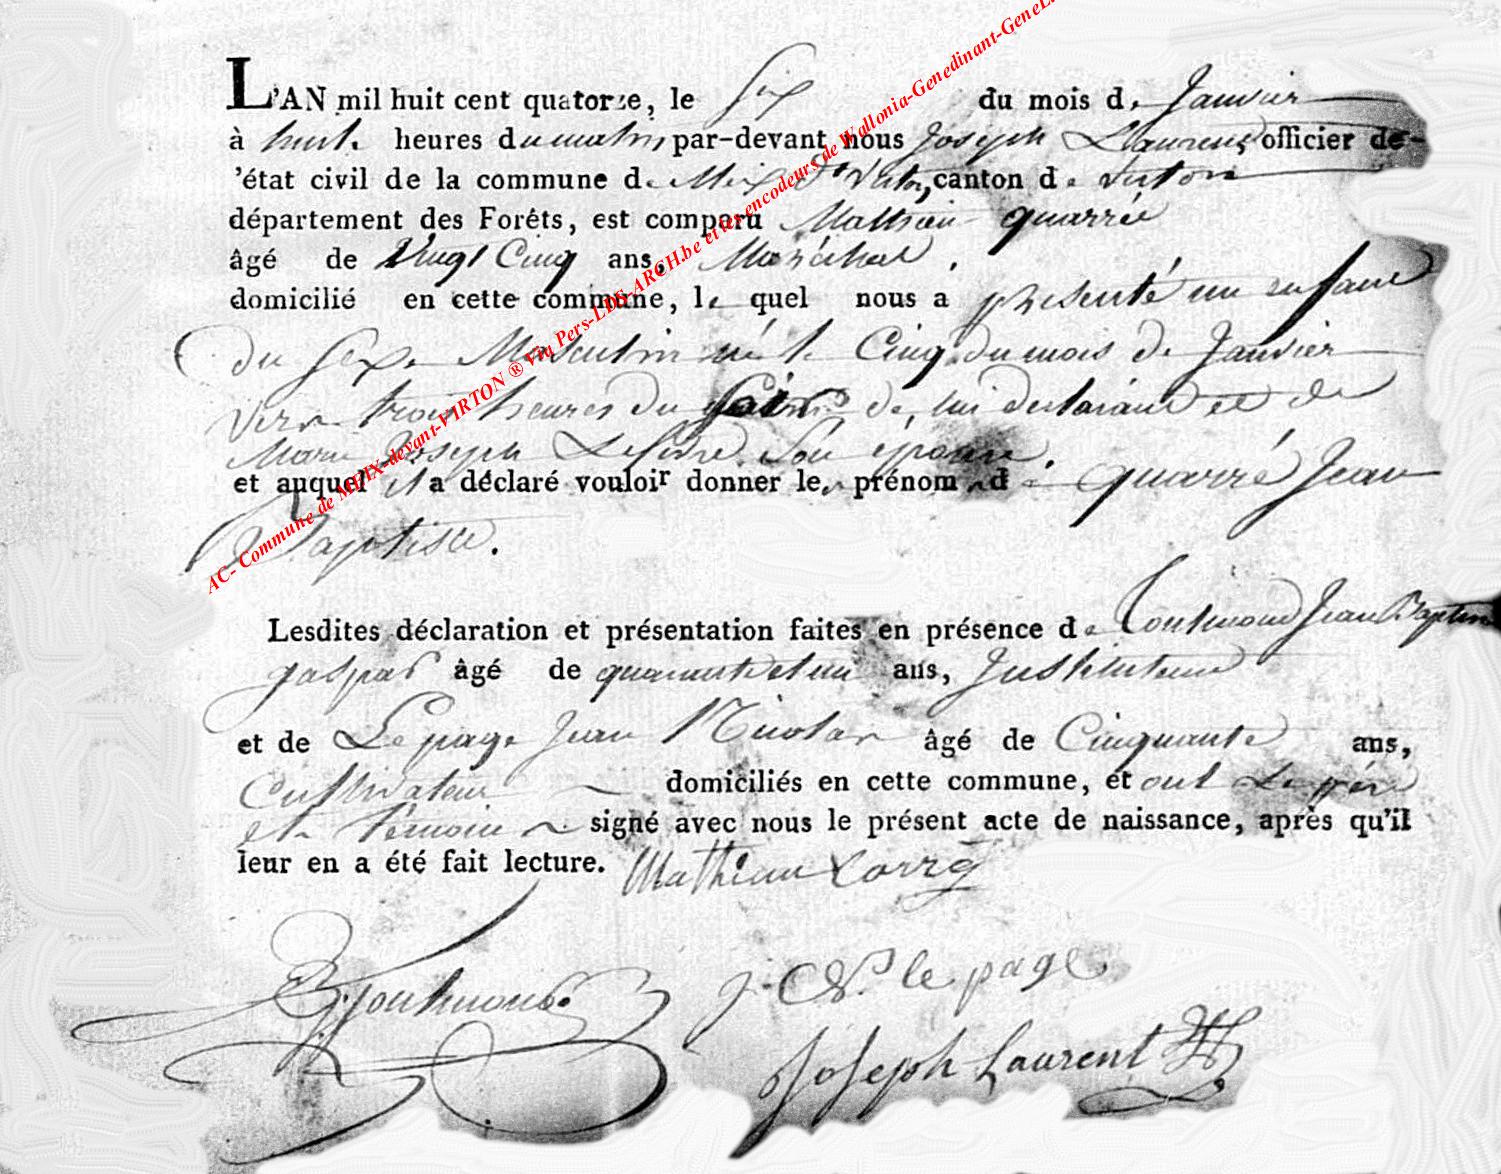 L'AN mil huit cent quatorze, le Six du mois de Janvier
à huit heures du matin, par-devant nous Joseph Laurent, officier de
'état civil de la commune de Meix dt Virton, canton de Virton
département des Forêts, est comparu Mathieu quarré
âgé de Vingt Cinq ans, Maréchal,
domicilié en cette commune, le quel nous a présenté un enfant
du Sexe Masculin né le Cinq du mois de Janvier
vers trois heures du de lui déclarant et de
Marie Joseph son épouse.
et auquel il a déclaré vouloir donner les prénoms de quarré Jean
Baptiste.
Lesdites déclaration et présentation faites en présence de Jean Baptiste
gaspar âgé de quarante et un ans, Instituteur
et de Le page Jean Nicolas âgé de Cinquante ans,
Cultivateur domiciliés en cette commune, et ont Le père
et témoins signé avec nous le présent acte de naissance, après qu'il
leur en a été fait lecture. Mathieu Carré
J. N. le page
Joseph Laurent
AC- Commune de MEIX-devant-VIRTON ® Via Pers-LDS-ARCH.be et les encodeurs de Wallonia-Genedinant-GeneL